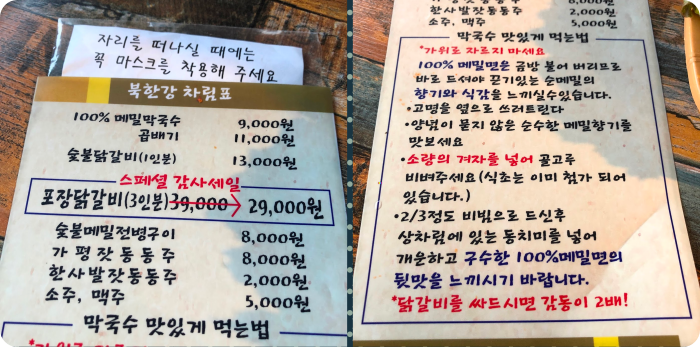 자리를 떠나실 때에는
꼭 마스크를 착용해 주세요
북한강 차림표
100% 메밀막국수 9,000원
곱배기 11,000원
숯불닭갈비(1인분) 13,000원
스페셜 감사세일
포장닭갈비(3인분) 39,000 → 29,000원
숯불메밀전병구이 8,000원
가평잣동동주 8,000원
한사발잣동동주 2,000원
소주, 맥주 5,000원
막국수 맛있게 먹는법
한사발잣동동주 2,000원
소주, 맥주 5,000원
막국수 맛있게 먹는법
*가위로 자르지 마세요
100% 메밀면은 금방 불어 버리므로
바로 드셔야 끈기있는 순메밀의
향기와 식감을 느끼실수있습니다.
•고명을 옆으로 쓰러트린다
•양념이 묻지 않은 순수한 메밀향기를
맛보세요
•소량의 겨자를 넣어 골고루
비벼주세요(식초는 이미 첨가 되어
있습니다.)
•2/3정도 비빔으로 드신후
상차림에 있는 동치미를 넣어
개운하고 구수한 100%메밀면의
뒷맛을 느끼시기 바랍니다.
*닭갈비를 싸드시면 감동이 2배!